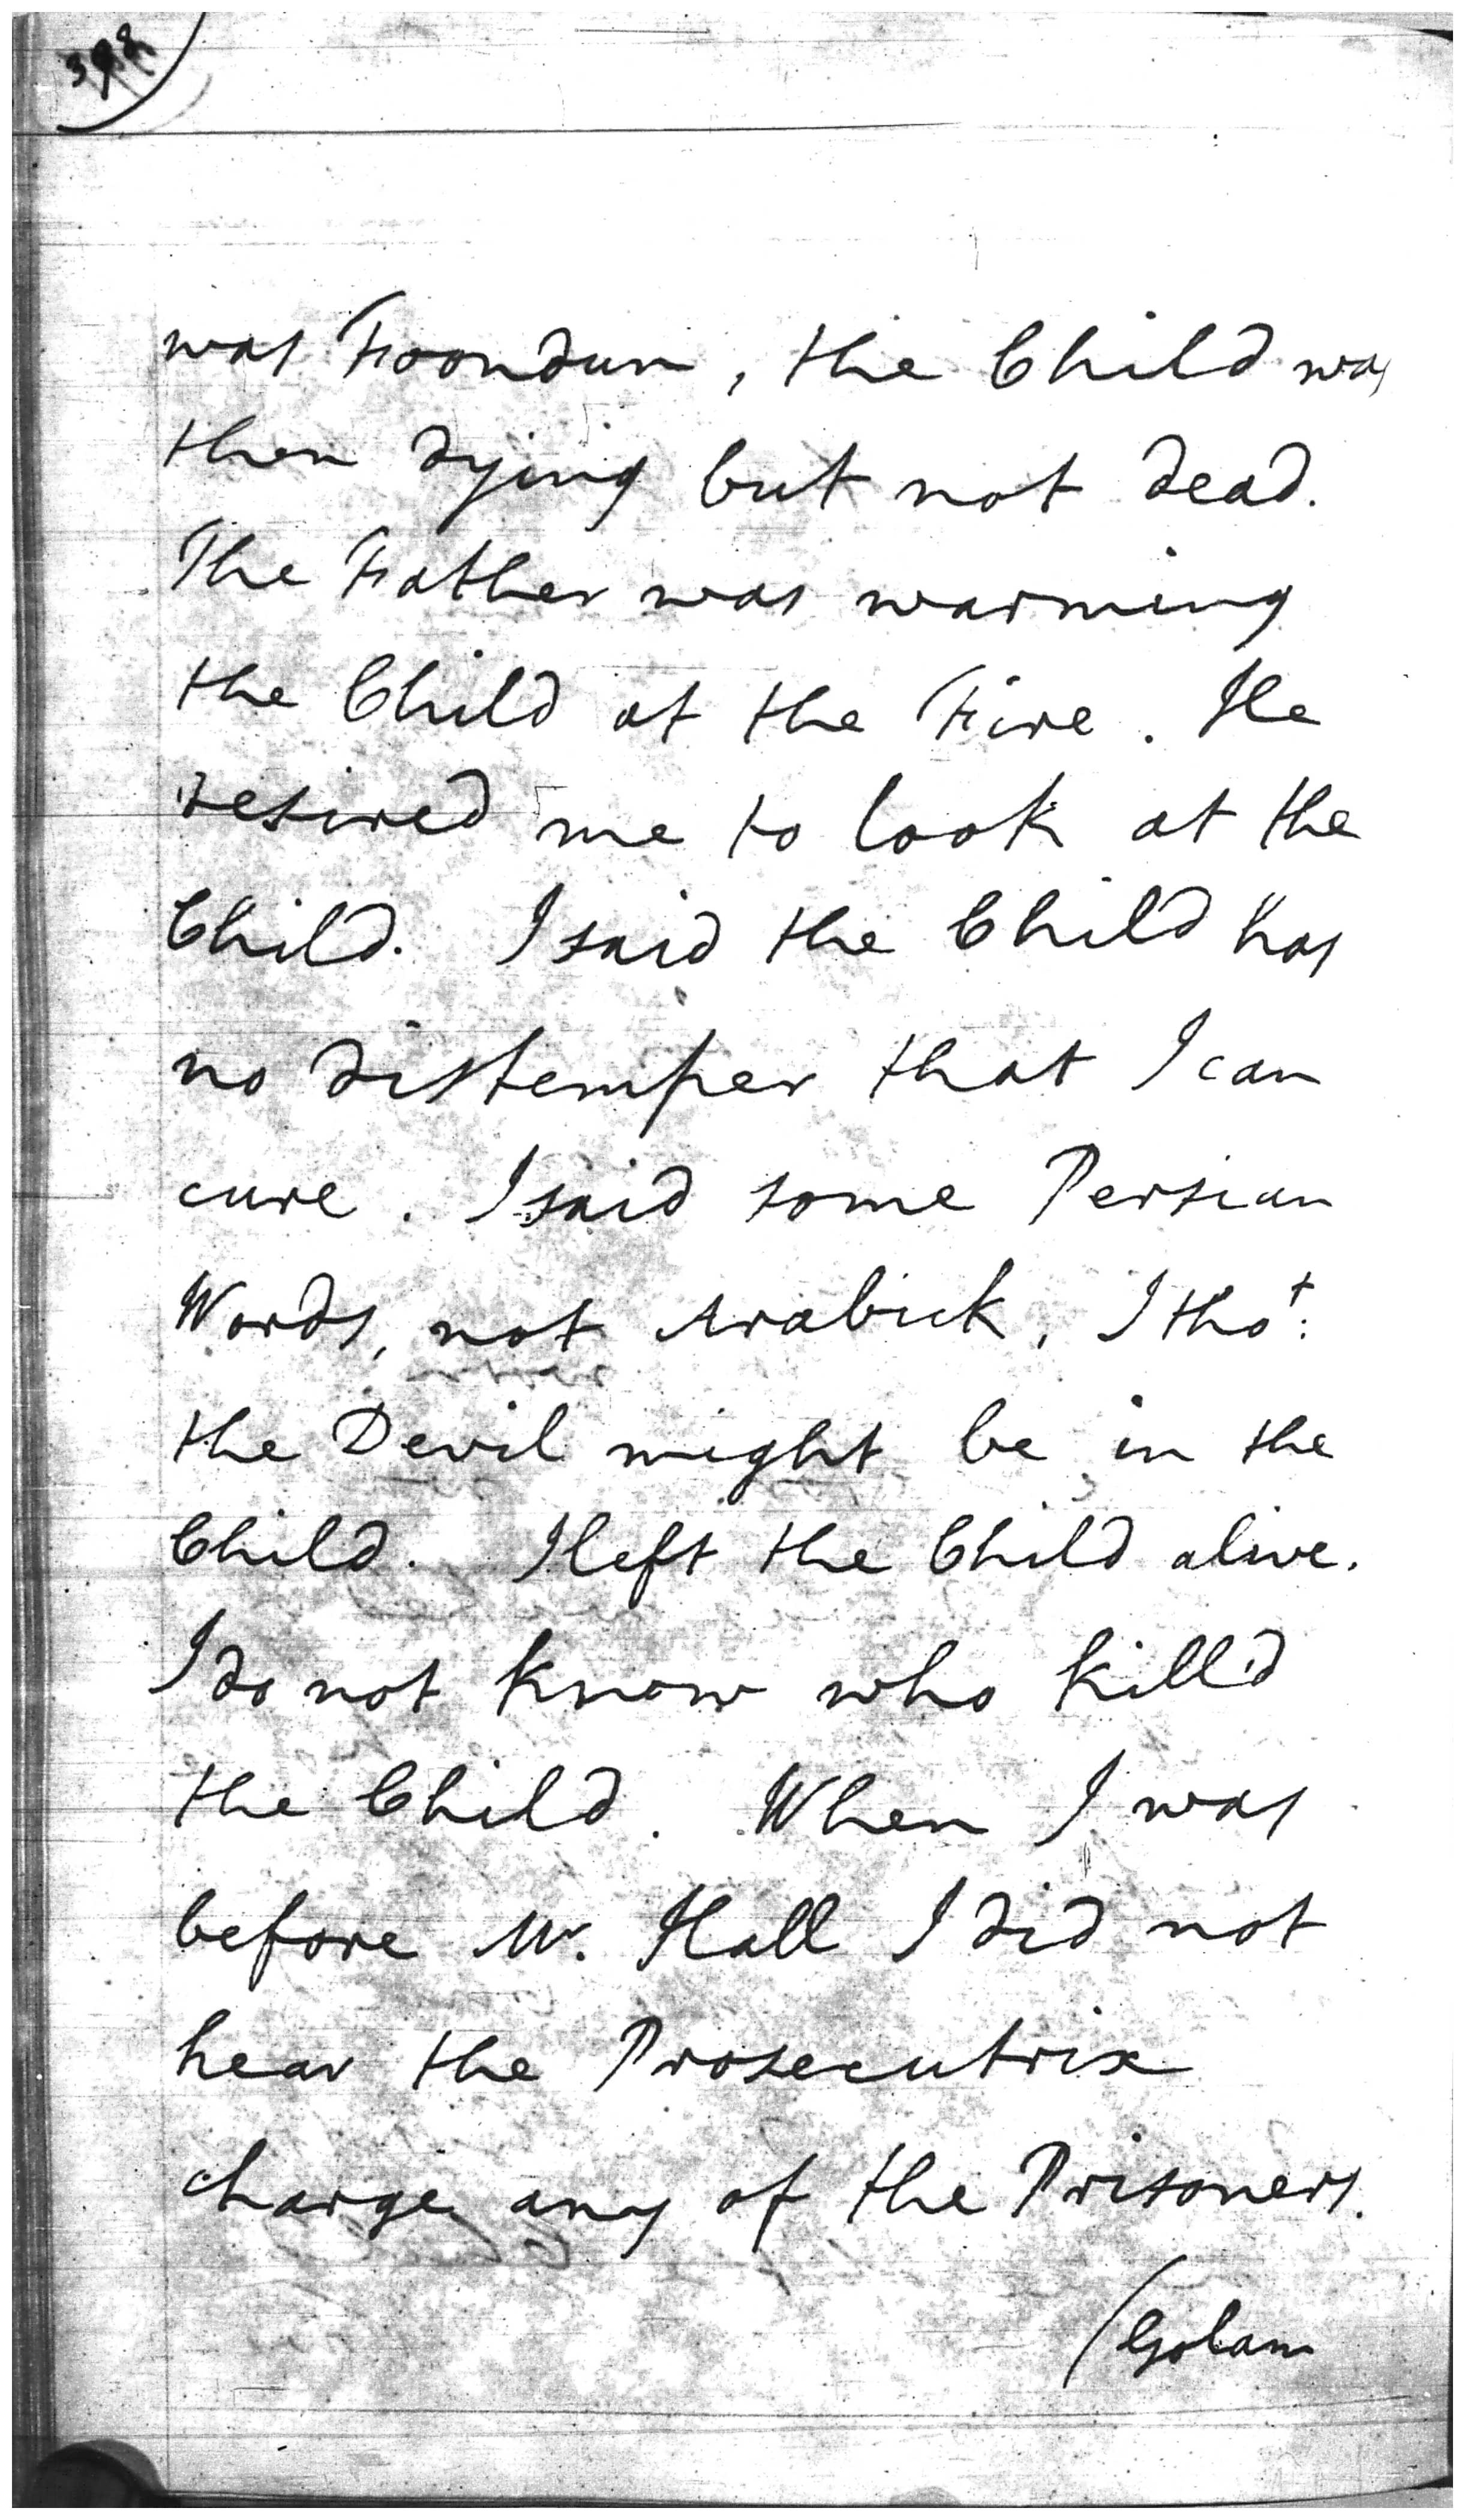 was Foondun, the Child was
then dying but not dead.
The Father was warming
the Child at the Fire. He
desired me to look at the
Child. I said the Child has
no distemper that I can
cure. I said some Persian
Words, not Arabick, I tho^t:
the Devil might be in the
Child. I left the Child alive.
I do not know who kill'd
the Child. When I was
before Mr. Hall I did not
hear the Prosecutrix
charge any of the Prisoners.
(Golam